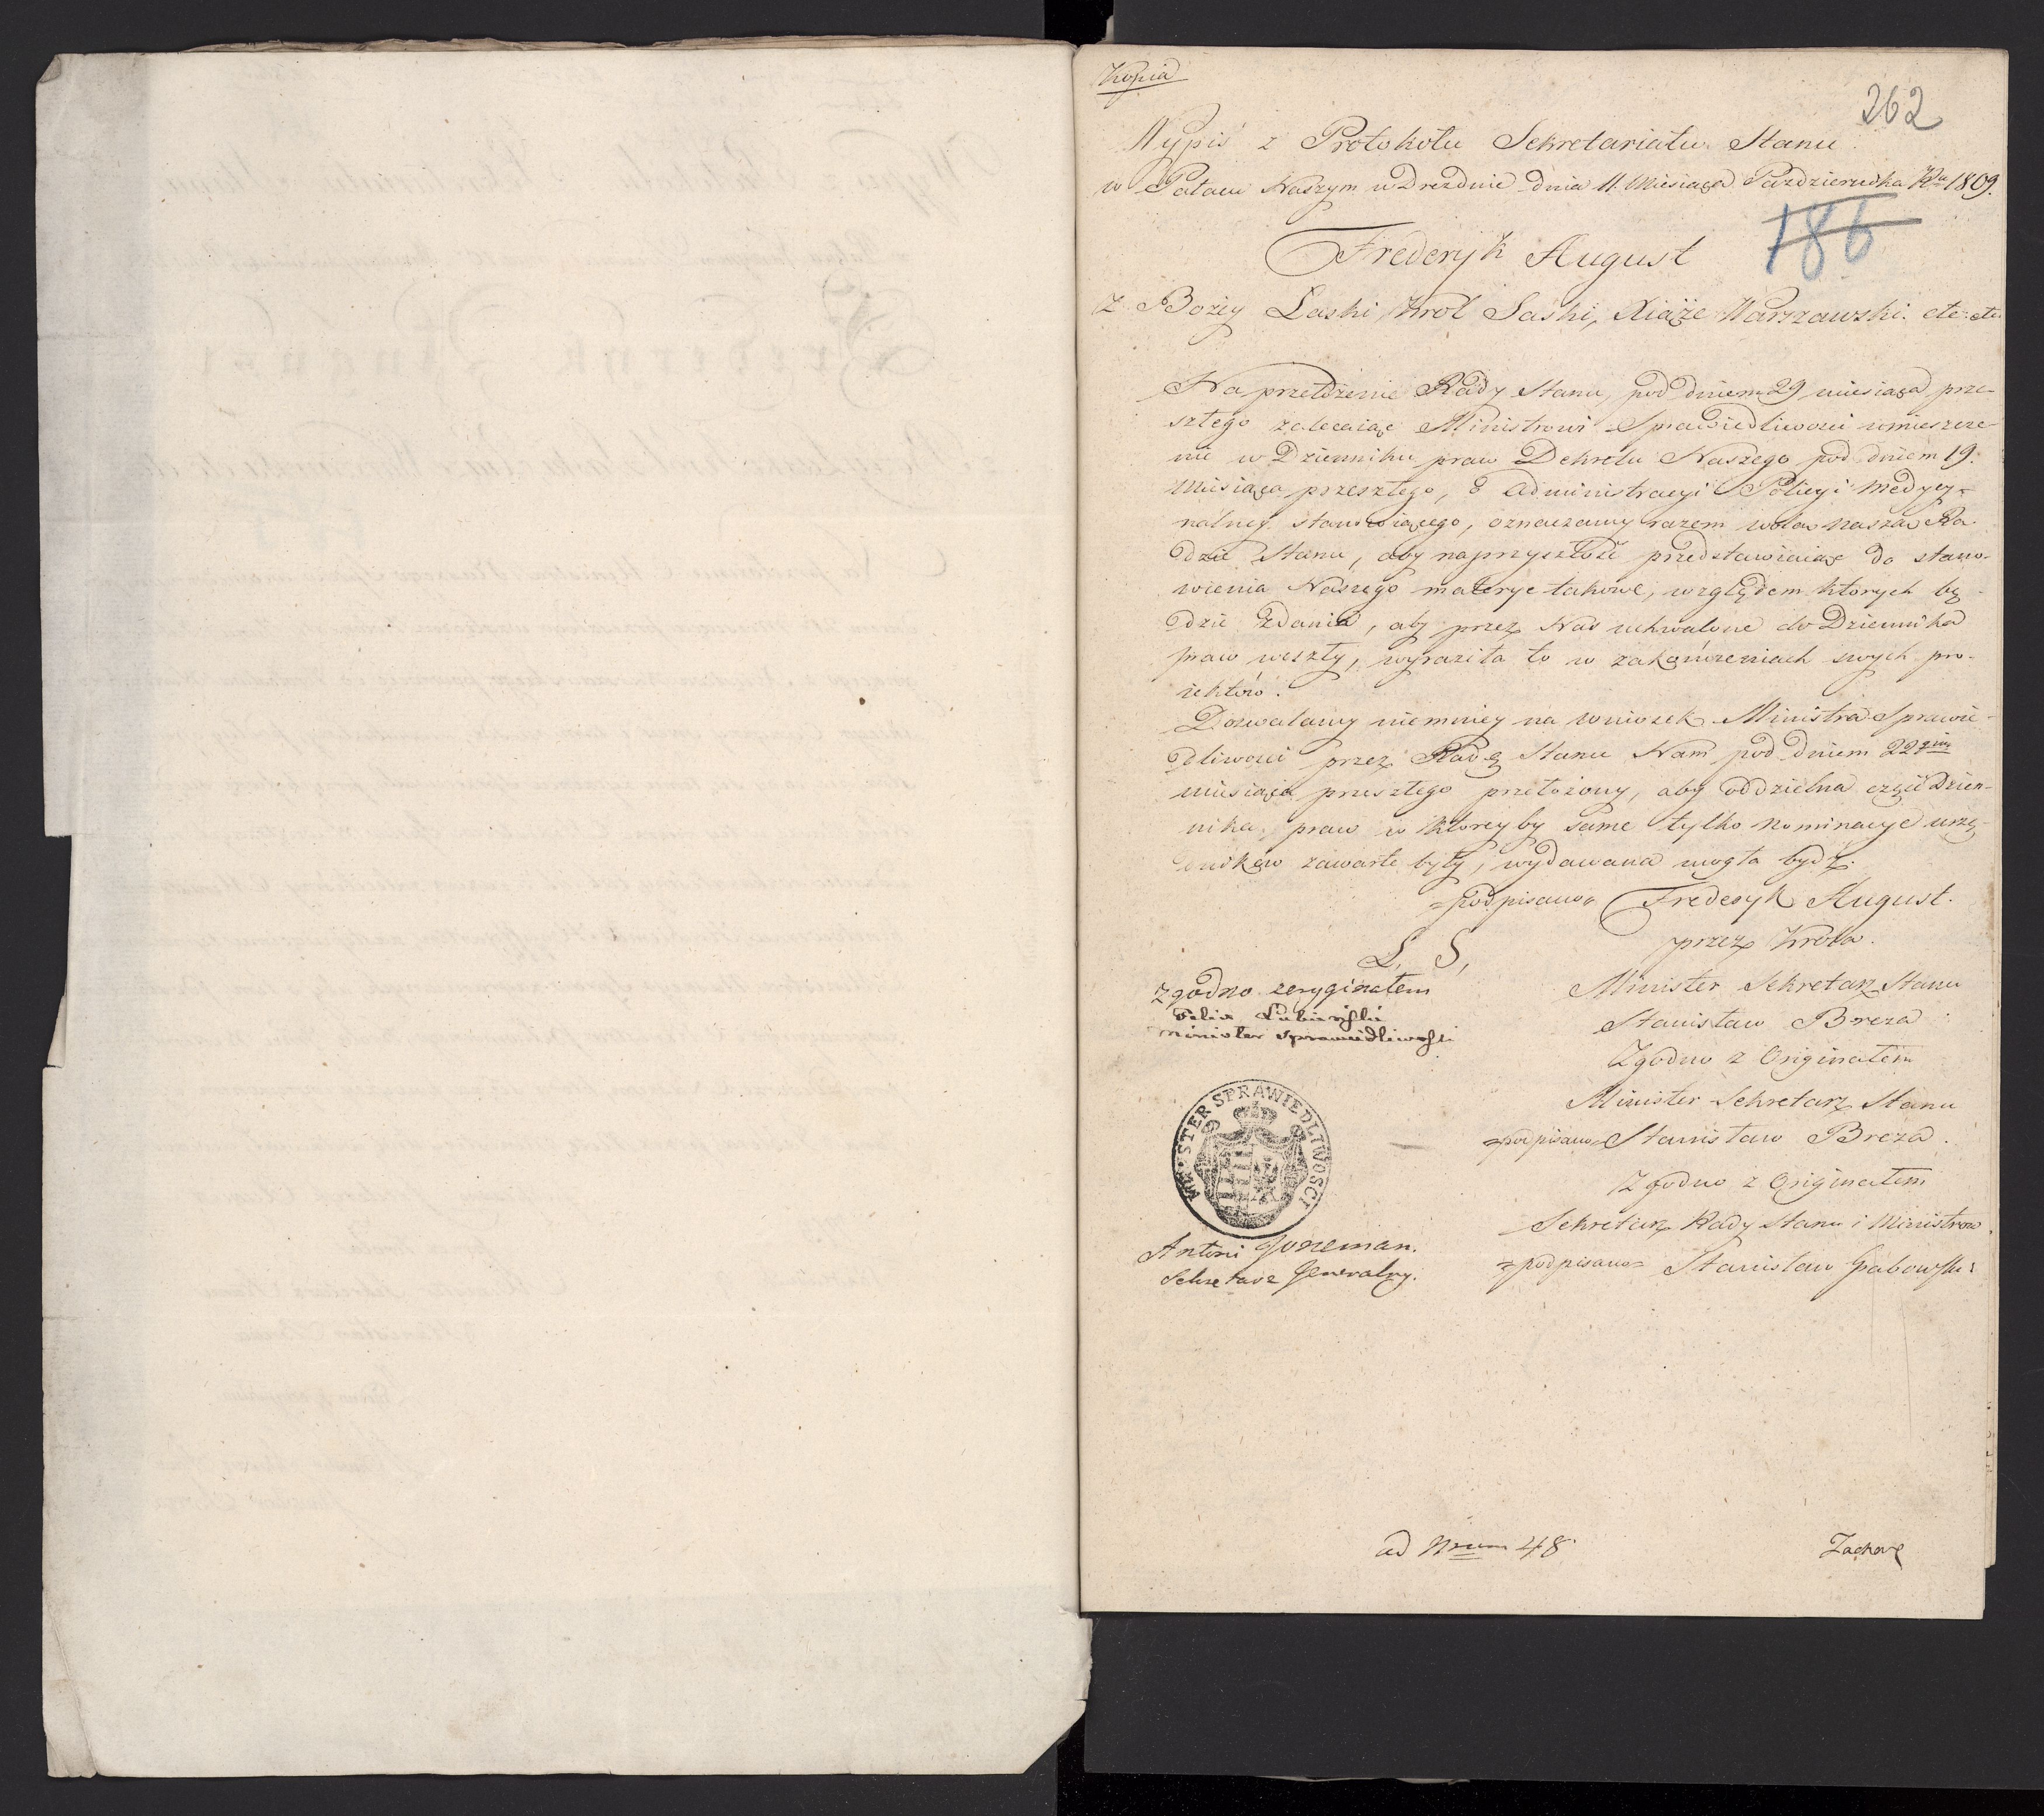 Kopia
262
Wypis z Protokołu Sekretariatu Stanu
w Pałacu Naszym w Dreznie dnia 11. Miesiąca Pazdziernika Rku 1809.
186
Frederyk August
z Bożey Łaski, Krol Saski, Xiąże Warszawski. etc: etc:
Na przełożenie Rady Stanu, pod dniem 29 miesiąca prze-
szłego zalecaiąc Ministrowi Sprawiedliwosci umieszcze-
nie w Dzienniku praw Dekretu Naszego pod dniem 19.
miesiąca przeszłego, o administracyi Policyi medycy-
nalney stanowiącego, oznaczamy razem wolą naszą Ra-
dzie Stanu, aby naprzyszłość przedstawiaiąc do stano-
wienia Naszego materye takowe, względem ktorych bę-
dzie zdania, aby przez Nas uchwalone do Dziennika
praw weszły, wyraziła to w zakończeniach swych pro-
iektów.
Dozwalamy niemniey na wniosek Ministra Sprawie-
dliwosci przez Radę Stanu Nam pod dniem 22gim
miesiąca przeszłego przełożony, aby oddzielna część Dzien-
nika praw w ktoreyby same tylko nominacye urzę-
dników zawarte były, wydawana mogła bydź.
=podpisano= Frederyk August.
przez Krola.
L. S.
Minister Sekretarz Stanu
Zgodno zoryginałem
Felix Lubienski
Minister Sprawiedliwosci
Stanisław Breza
Zgodno z Originałem
Minister Sekretarz Stanu
=podpisano= Stanisław Breza.
MINISTER SPRAWIEDLIWOSCI
Zgodno z Originałem
Sekretarz Rady Stanu i Ministrow
=podpisano= Stanisław Grabowski
Antoni
Sekretarz Generalny.
ad Nrum 48.